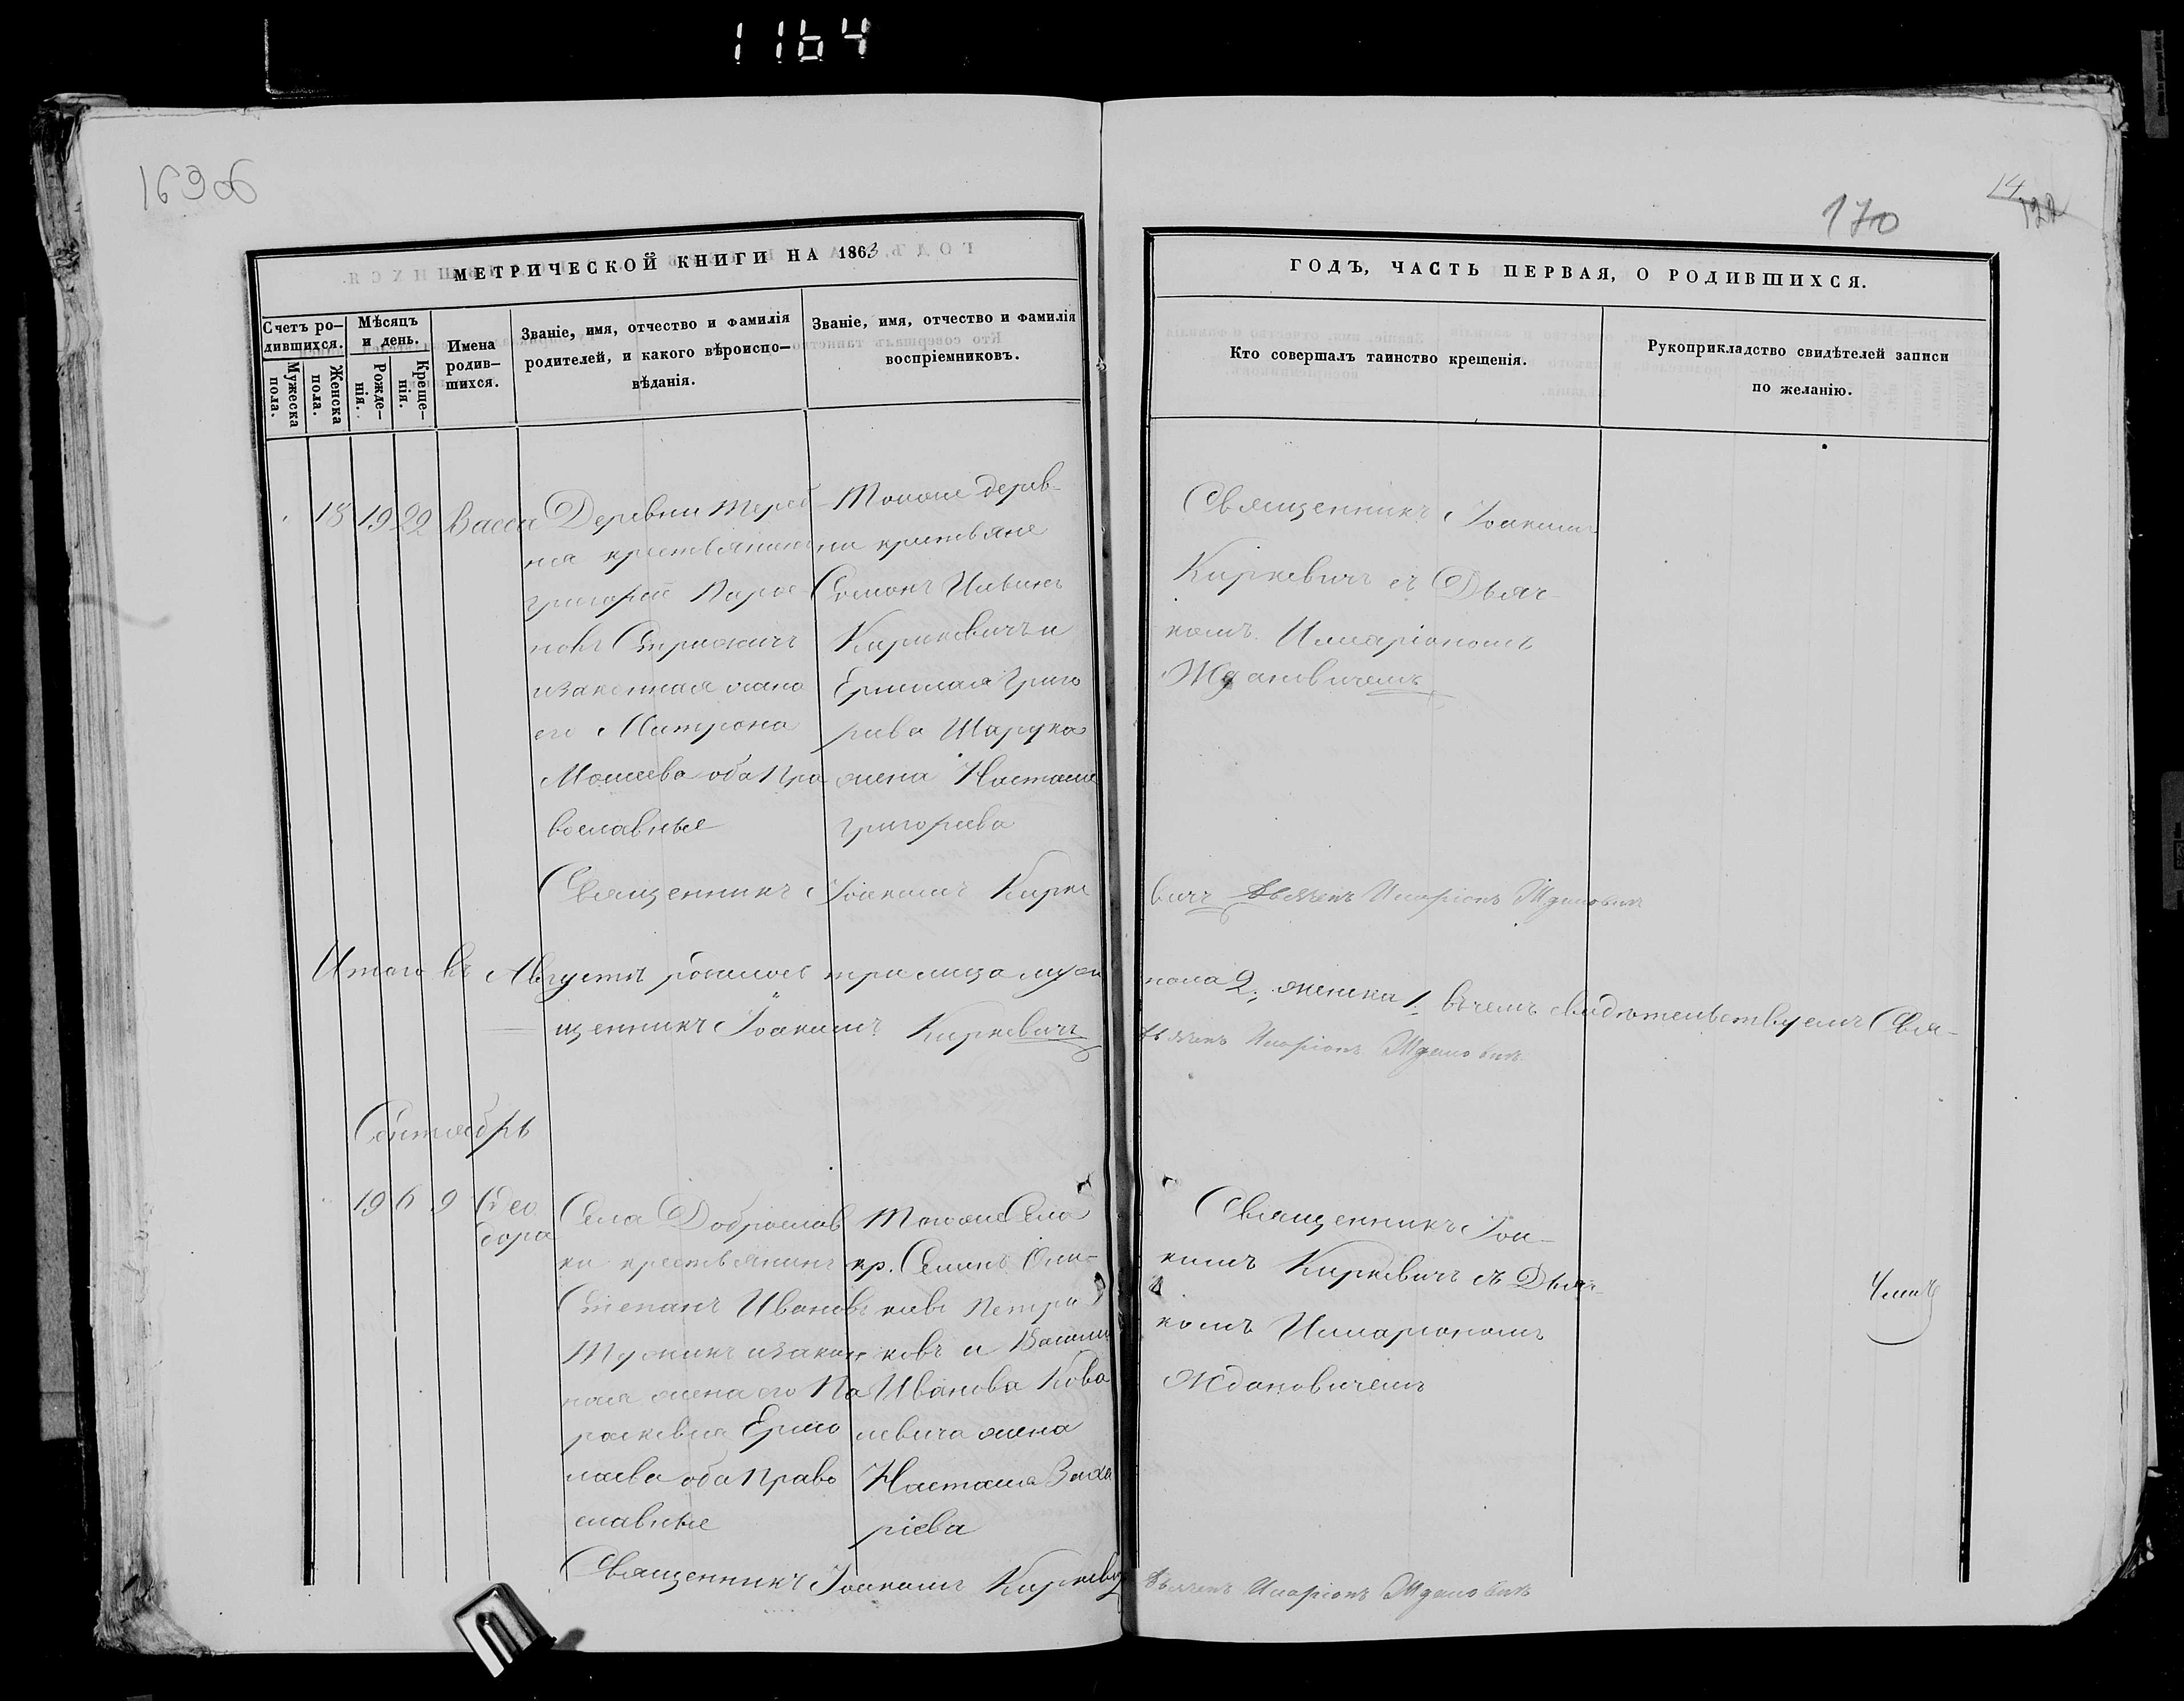 1164
1696
170
14
122
МЕТРИЧЕСКОЙ КНИГИ НА 1863
ГОДЪ, ЧАСТЬ ПЕРВАЯ, О РОДИВШИХСЯ.
Счетъ ро-
дившихся.
Мужеска
пола.
Женска
пола.
Мѣсяцъ
и день.
Рожде-
нія.
Креще-
нія.
Имена
родив-
шихся.
Званіе, имя, отчество и фамилія
родителей, и какого вѣроиспо-
вѣданія.
Званіе, имя, отчество и фамилія
воспріемниковъ.
Кто совершалъ таинство крещенія.
Рукоприкладство свидѣтелей записи
по желанію.
18 19 22 Васса
Деревни
ня крестьянинъ
Григорій
новъ
изаконная жена
его Матрона
Моисеева оба Пра
вославные
Тоюже дерев-
ни крестьяне
Киркевичъ и
Ермолая Григо
рьева Шарука
жена Настасія
Григорьева
Священникъ Іоакимъ
Киркевичъ съ Дьяч
комъ Иларіономъ
Ждановичемъ
Священникъ Іоакимъ Кирке
вичъ Дьячекъ Иларіонъ Ждановичъ
Итого въ Августѣ родилось три лица муж
пола 2, женска 1. въ чемъ свидѣтельствуемъ Свя-
щенникъ Іоакимъ Киркевичъ
Дьячекъ Иларіонъ Ждановичъ
Сентябрь
19 6 9 Ѳео
дора
Села Доброслав
ки крестьянинъ
Степанъ Ивановъ
изакон
ная жена его Па
раскевія Ермо
лаева оба Право
славные
Тогоже Села
кр.
Петра
ковъ и
Иванова Кова
левича жена
Настасія Заха
ріева
Священникъ Іоа-
кимъ Киркевичъ съ Дьяч-
комъ Иларіономъ
Ждановичемъ
Священникъ Іоакимъ Киркевич
Дьячекъ Иларіонъ Ждановичъ